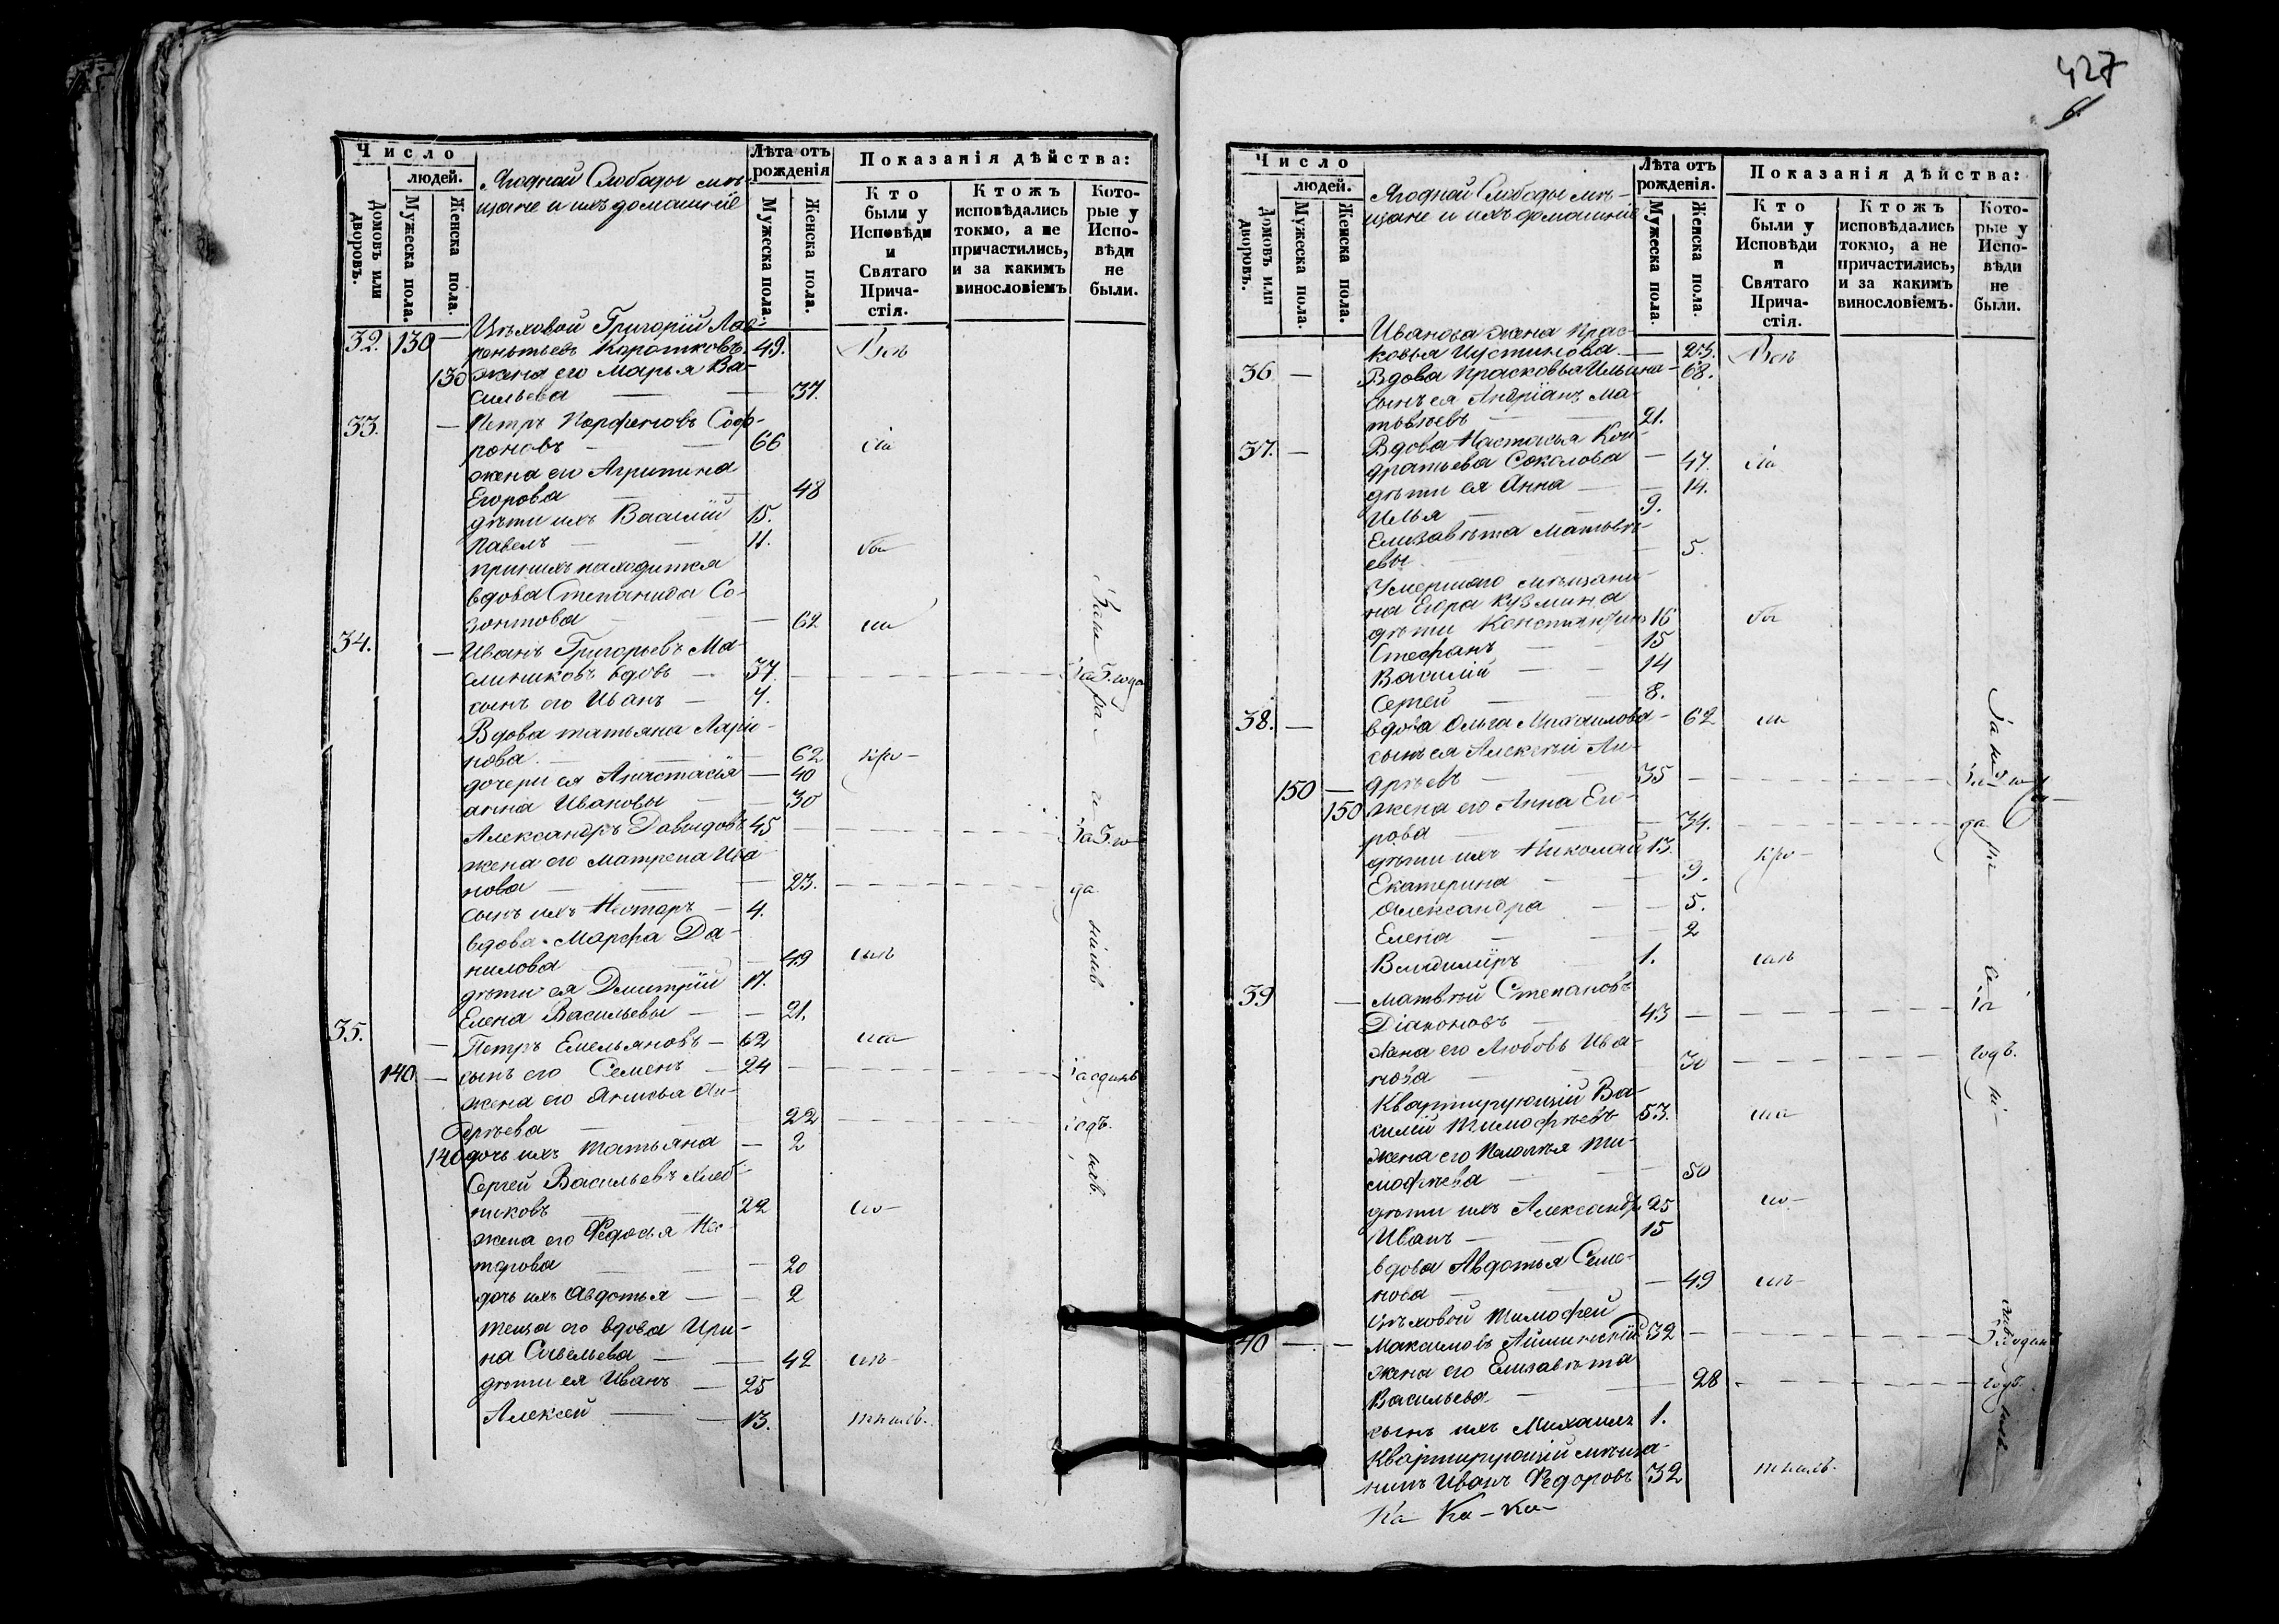 Число
людей.
Домовъ или дворовъ.
Мужеска пола.
Женска пола.
Ягодной Слободы мѣ-
щане и ихъ домашніе
Лѣта отъ
рожденія
Мужеска пола.
Женска пола.
Показанія дѣйства:
Кто
были у
Исповѣди
и
Святаго
Прича-
стія.
Ктожъ
исповѣдались
токмо, а не
причастились,
и за какимъ
винословіемъ
Кото-
рые у
Испо-
вѣди
не
были.
Цѣховой Григорій
32. 130 — Коротковъ 49.
130 жена его Марья Ва-
сильева — 37.
33. — Петръ Парфеновъ Соф-
роновъ — 66
жена его Агрипина
Егорова — 48
дѣти ихъ Василій 15.
Павелъ — 11.
при нихъ находится
вдова Степанида Со-
зонтова — 62
34. — Иванъ Григорьевъ Ма-
слинковъ вдовъ — 37.
сынъ его Иванъ — 7.
Вдова Татьяна Ларіо-
нова — 62
дочери ея Анастасія — 40
Анна Ивановы — 30
Александръ Давыдовъ 45
жена его Матрена Ива-
нова — 23. да
сынъ ихъ Несторъ — 4.
вдова Марфа Да-
нилова — 49
дѣти ея Дмитрій 17.
Елена Васильевы — 21.
35. — Петръ Емельяновъ — 62
140 — сынъ его Семенъ — 24 за единъ
жена его Анисья Ан-
дреева — 22 годъ.
140 дочь ихъ Татьяна — 2
Сергей Васильевъ Хлеб-
никовъ — 22
жена его Федосья Нес-
торова — 20
дочь ихъ Авдотья — 2
теща его вдова Ири-
на Савельева — 42
дѣти ея Иванъ — 25
Алексей — 13.
427
6.
Число
людей.
Домовъ или дворовъ.
Мужеска пола.
Женска пола.
Ягодной Слободы мѣ-
щане и ихъ домашніе
Лѣта отъ
рожденія.
Мужеска пола.
Женска пола.
Показанія дѣйства:
Кто
были у
Исповѣди
и
Святаго
Прича-
стія.
Ктожъ
исповѣдались
токмо, а не
причастились,
и за какимъ
винословіемъ.
Кото-
рые у
Испо-
вѣди
не
были.
Иванова жена Прас-
ковья Иустинова — 23.
36 — Вдова Прасковья Ильина — 68.
сынъ ея Андріанъ Ма-
твѣевъ — 21.
37. — Вдова Настасья Кон-
дратьева Соколова — 47.
дѣти ея Анна — 14.
Илья — 9.
Елизавѣта Матвѣ-
евы — 5.
Умершаго мѣщани-
на Егора Кузмина
дѣти Константинъ 16
Стефанъ — 15
Василій — 14
Сергей — 8.
38. — вдова Ольга Михаилова — 62
сынъ ея Алексѣй Ан-
150 — дрѣевъ — 35
150 жена его Анна Его-
рова — 34. да
дѣти ихъ Николай 13.
Екатерина — 9.
Александра — 5.
Елена — 2
Владимиръ — 1.
39 — Матвѣй Степановъ
Діаконовъ — 43 — за
жена его Любовь Ива-
нова — 30 — годъ.
Квартирующій Ва-
силій Тимофѣевъ 53.
жена его Пелагея Ти-
мофѣева — 50
дѣти ихъ Александръ 25
Иванъ — 15
вдова Авдотья Семе-
нова — 49
Цѣховой Тимофей
40 — — Максимовъ 32
жена его Елизавѣта
Васильева — 28 — годъ.
сынъ ихъ Михаилъ 1.
Квартирующій мѣща-
нинъ Иванъ Федоровъ 32